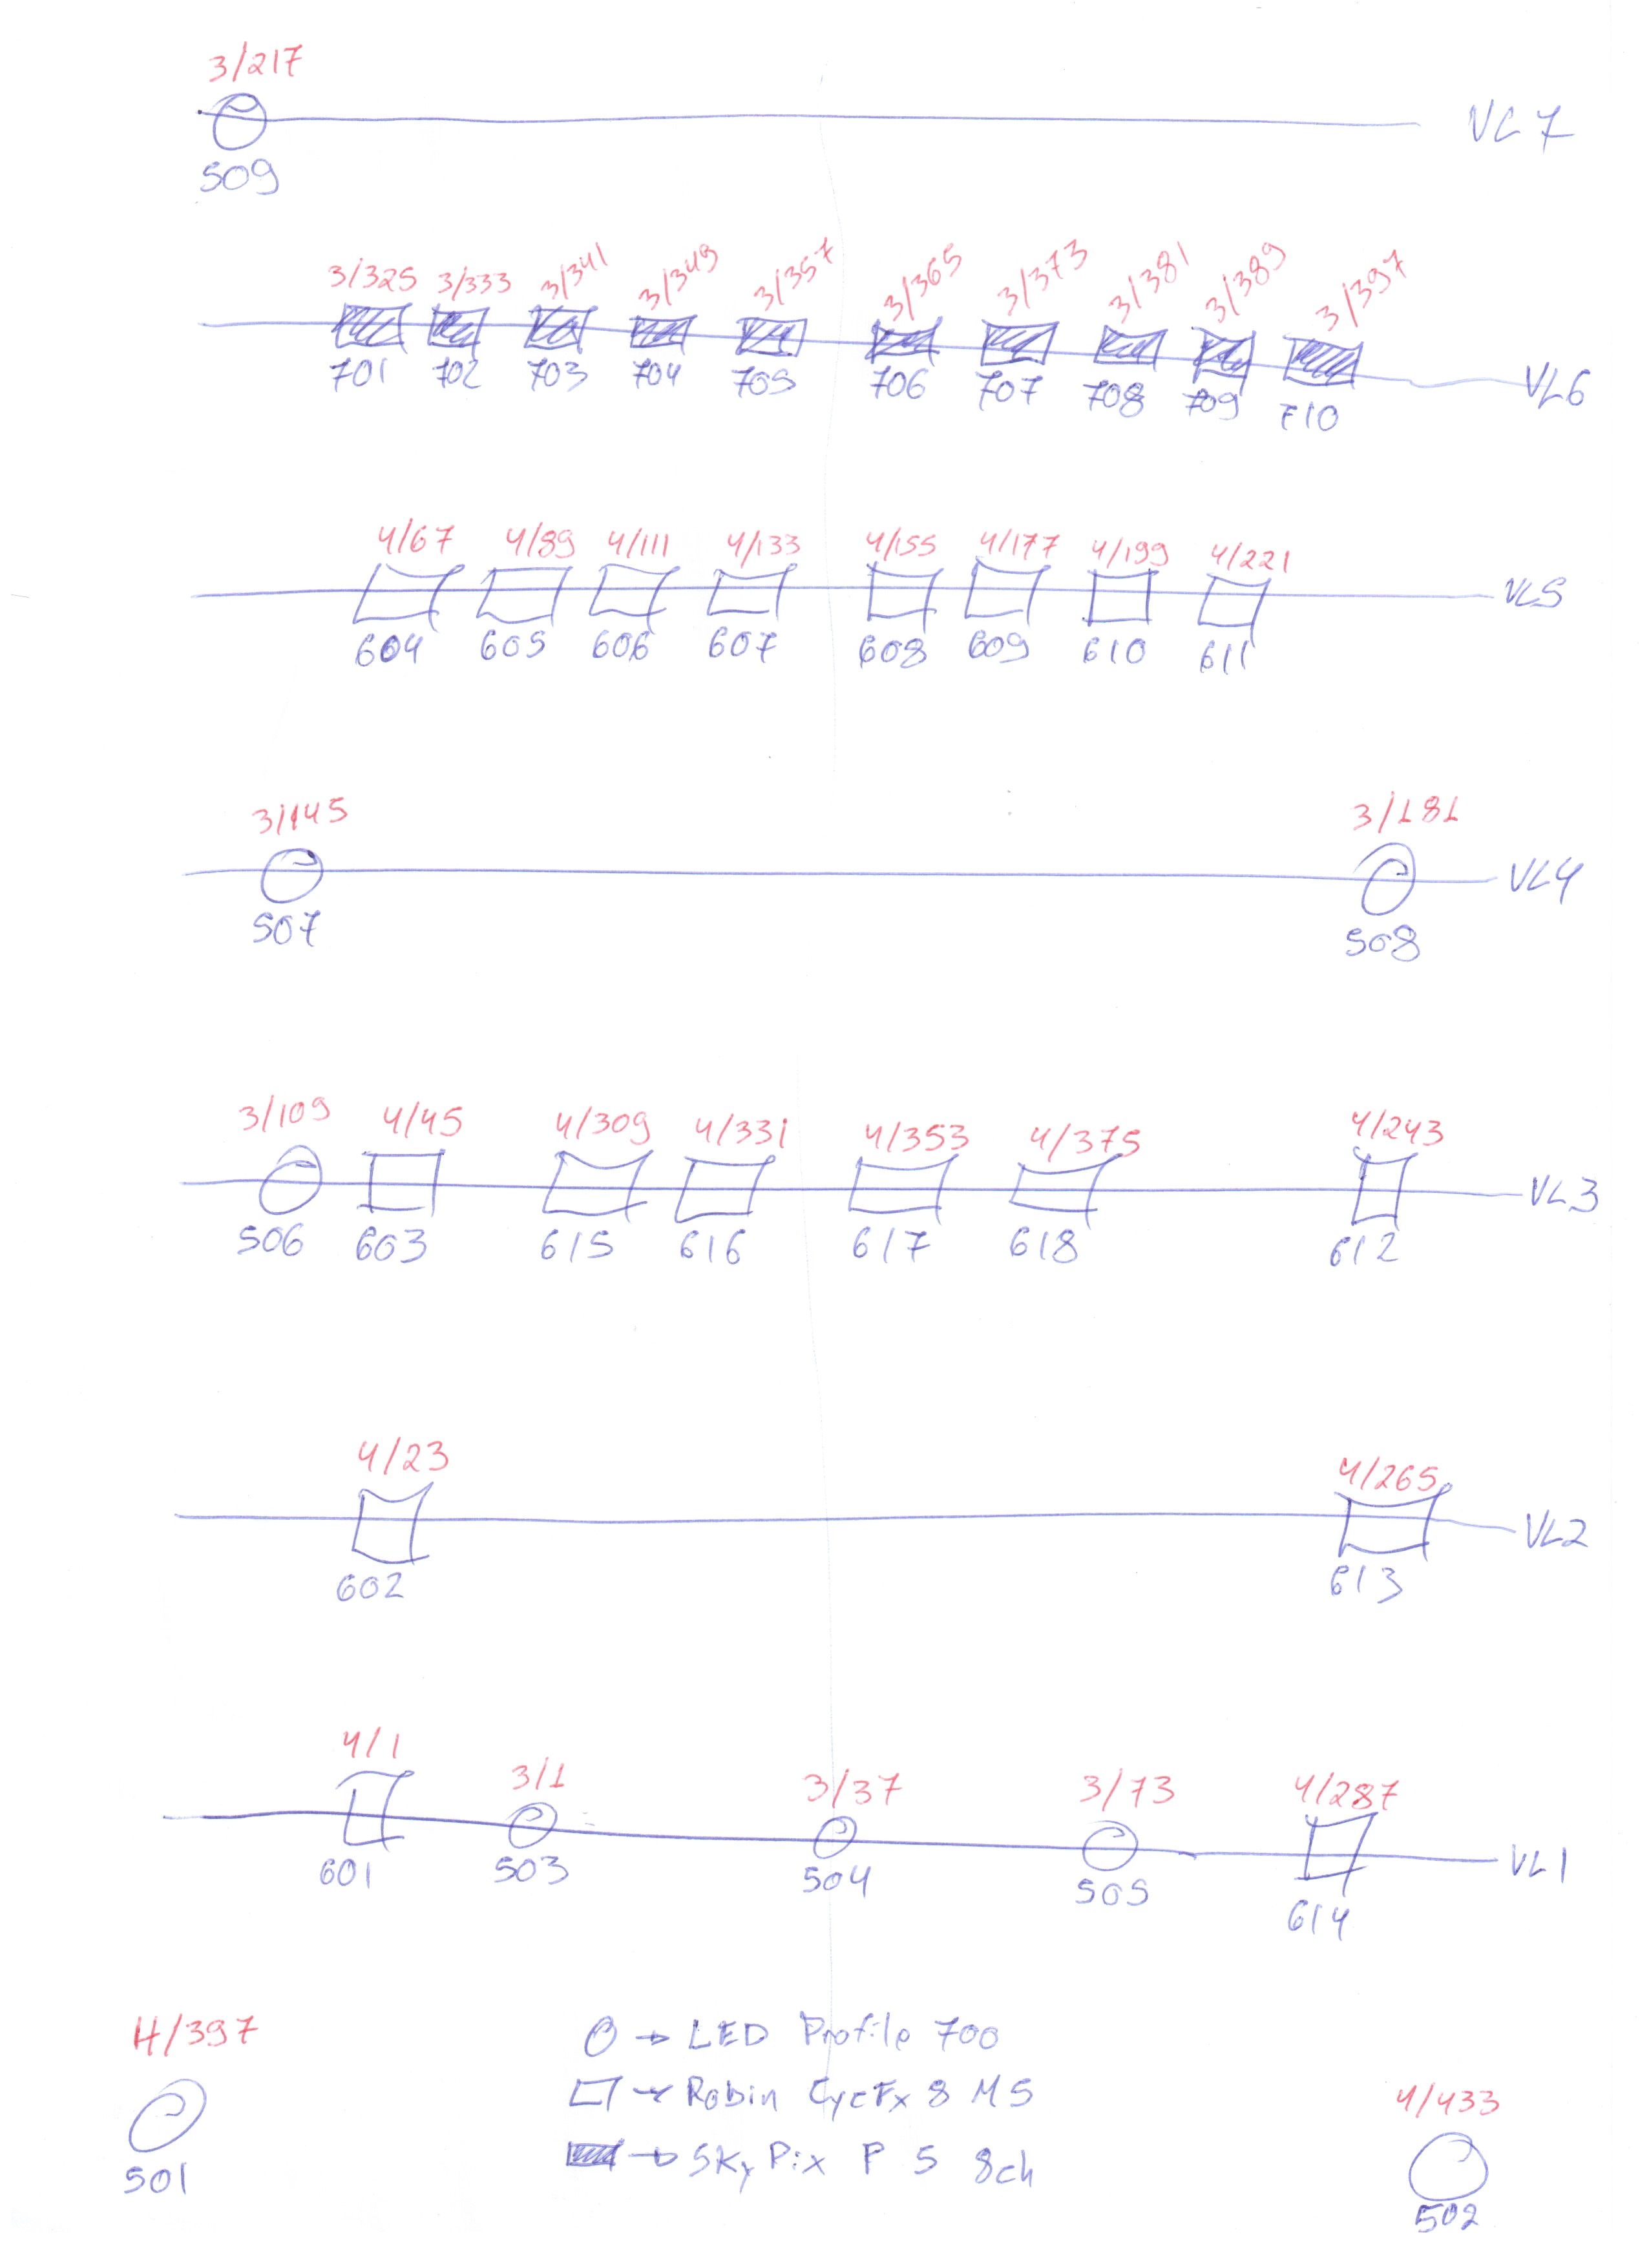 3/217
VL7
509
3/325 3/333 3/341 3/349 3/357 3/365 3/373 3/381 3/389 3/397
701 702 703 704 705 706 707 708 709 710
VL6
4/67 4/89 4/111 4/133 4/155 4/177 4/199 4/221
VL5
604 605 606 607 608 609 610 611
3/145 3/181
VL4
507 508
3/109 4/45 4/309 4/331 4/353 4/375 4/243
VL3
506 603 615 616 617 618 612
4/23 4/265
VL2
602 613
4/1 3/1 3/37 3/73 4/287
VL1
601 503 504 505 614
4/397
LED Profile 700
Robin CycFx 8 M5
4/433
SKyPix P 5 8ch
501
502